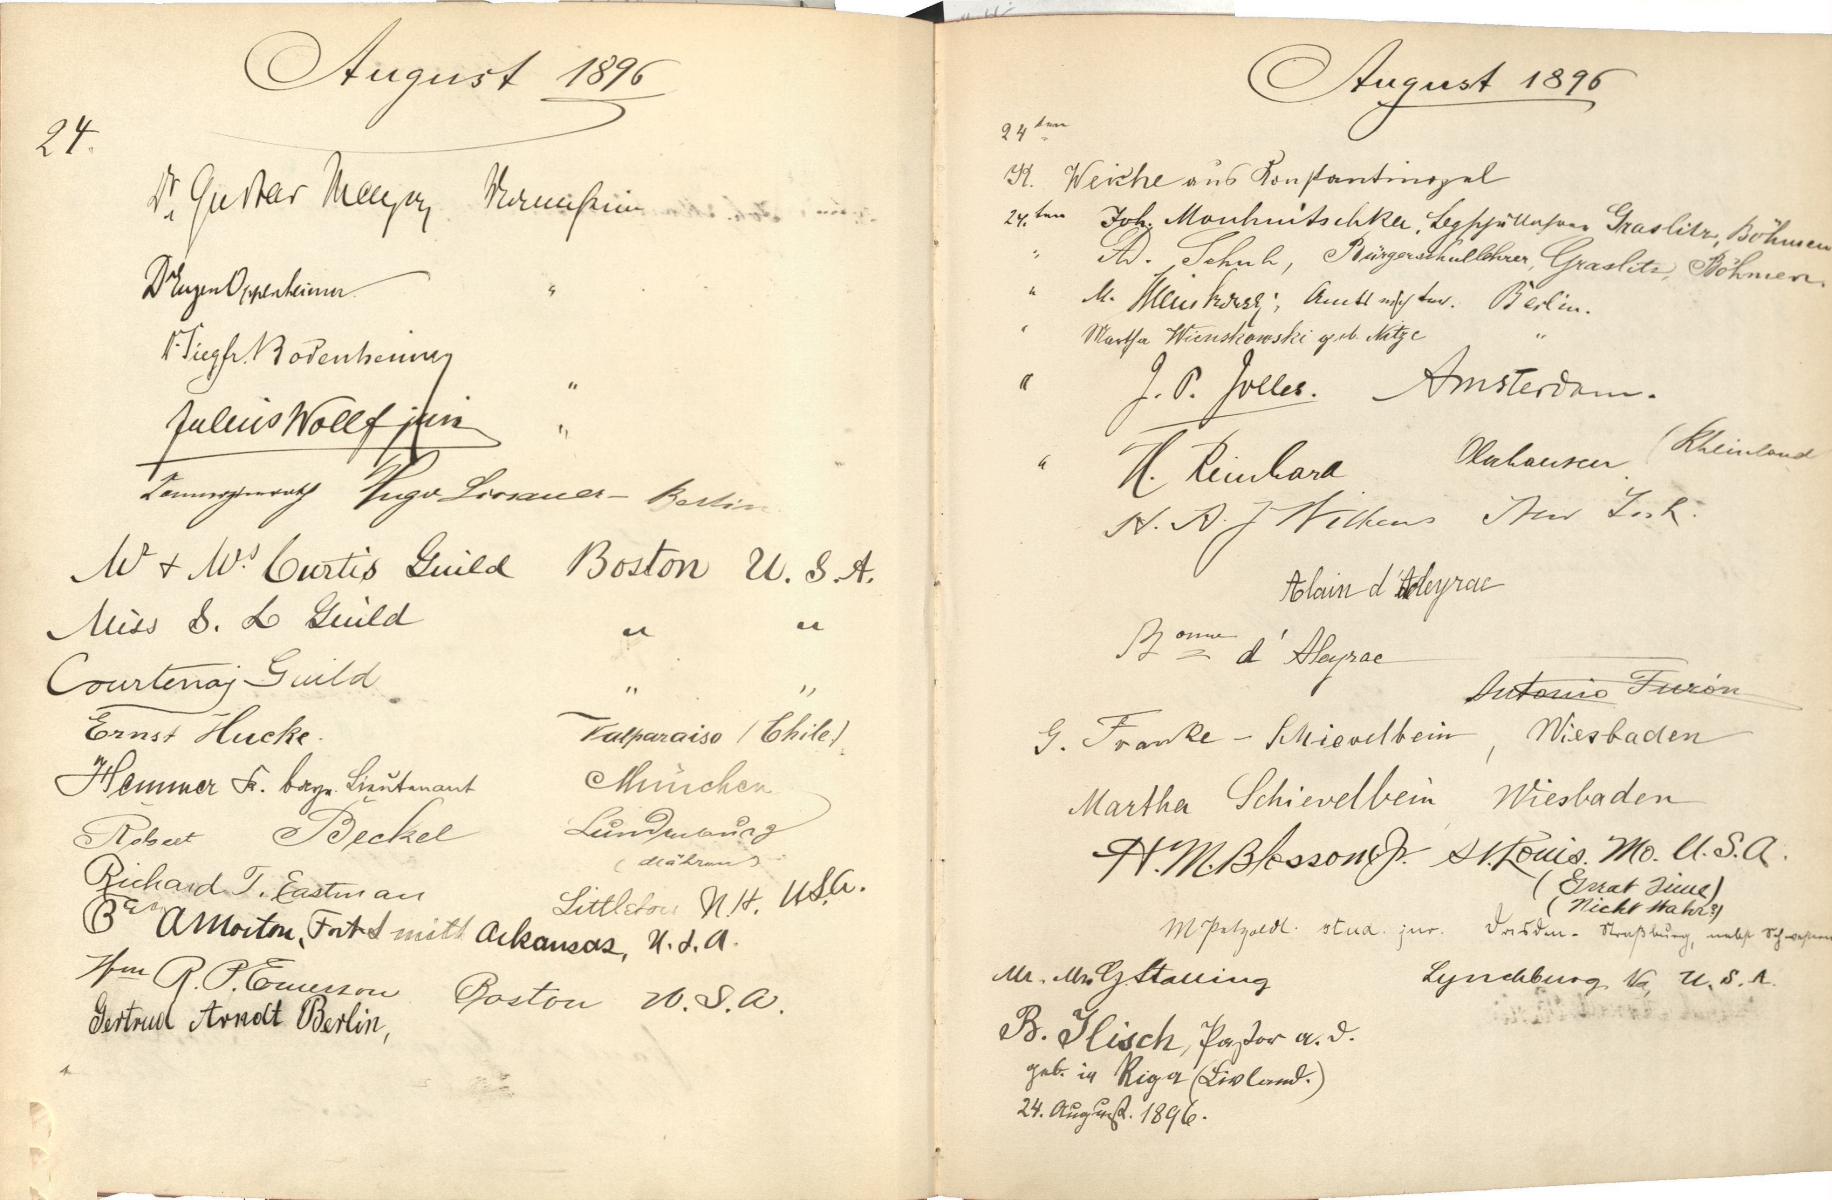 August 1896
24.
Dr Gustav Mayer
Dr Eugen Oppenheimer "
Dr Siegfr. Bodenheimer "
Julius Wollf jun "
Hugo Berlin
Mr & Mrs Curtis Guild Boston U. S. A.
Miss S. L Guild " "
Courtenay Guild " "
Ernst Hucke. Valparaiso (Chile)
Hemmer k. bayr. Lieutenant München
Robert Beckel Lundenburg
(Mähren)
Richard T. Eastman Littleton N. H. U.S.A.
A Morton, Fort Smith Arkansas, U. S. A.
R. P. Emerson Boston U. S. A.
Gertrud Arndt Berlin,
August 1896
24ten
K. Weiche aus Konstantinopel
24.ten Joh. Graslitz, Böhmen
" Schuh, Bürgerschullehrer, Graslitz, Böhmen.
" M. Wienskowski, Berlin.
" Martha Wienskowski geb. Nitze "
" J. P. Jolles. Amsterdam.
" H. Reinhard Oberhausen (Rheinland
H. A. J Wilkens New York.
Alain d'Aleyrac
Bonne d'Aleyrac
Antonio Furón
G. Franke - Schievelbein, Wiesbaden
Martha Schievelbein Wiesbaden
H. M. Blossom Jr. St. Louis. Mo. U. S. A.
(Errat Time)
(Nicht Wahr?)
M Petzoldt. stud. jur. Dresden - Straßburg, nebst
Mr. Mrs G Stalling Lynchburg Va, U. S. A.
B. Ilisch, Pastor a. D.
geb. in Riga (Livland.)
24. August. 1896.